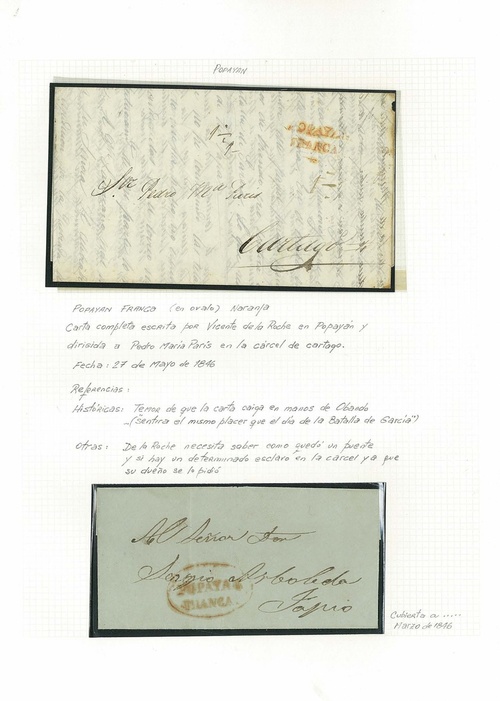 POPAYAN
POPAYAN
FRANCA
Sor Pedro Ma Paris
Cartago
POPAYAN FRANCA (en ovalo) Naranja
Carta completa escrita por Vicente de la Roche en Popayán y
dirisida a Pedro María París en la cárcel de cartago.
Fecha: 27 de Mayo de 1846
Referencias:
Históricas: Temor de que la carta caiga en manos de Obando
(Sentiria el mismo placer que el día de la Batalla de García")
Otras: De la Roche necesita saber como quedó un puente
y si hay un determinado esclavo en la cárcel ya que
su dueño se lo pidió
Al Señor Don
Sergio Arboleda
POPAYAN
FRANCA
Japio
Cubierta a .....
Marzo de 1846